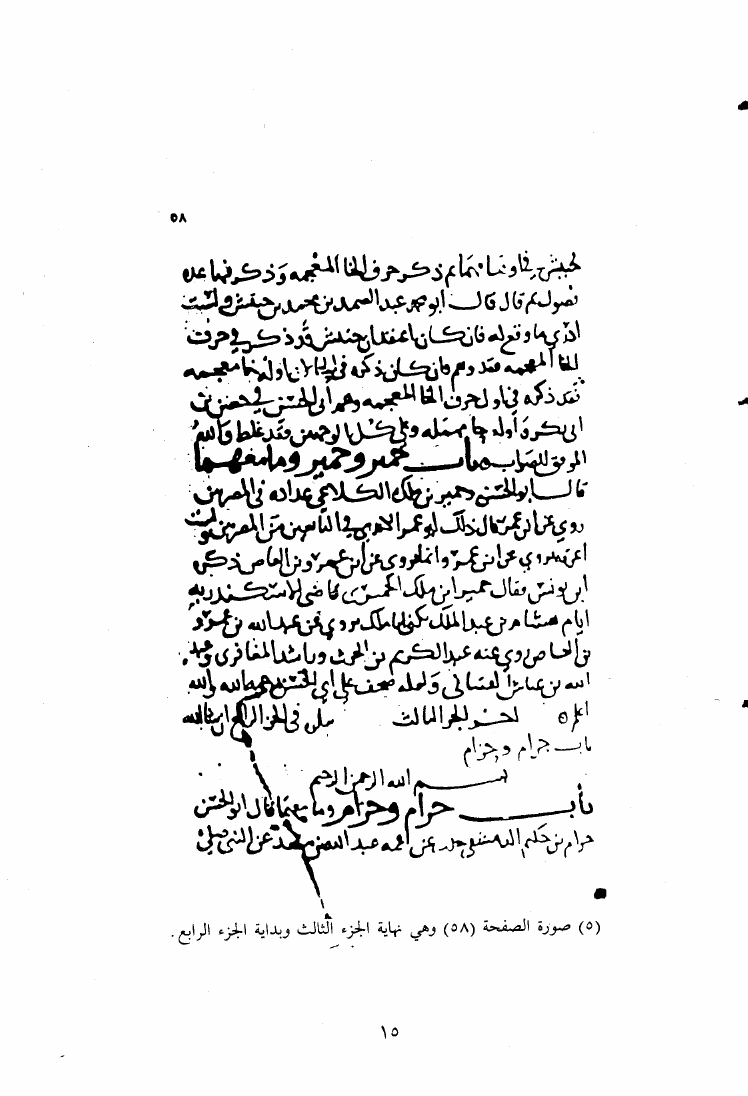 ٥٨
ثم ذكر حرف الخا المعجمه وذكر فيها عده
فصول ثم قال قال ابو محمد عبد الصمد بن محمد بن حنيش ولست
ادري ما وقع له فان كان اعتقد ان حنيش قد ذكر في حرف
الخا المعجمه فقد وهم فان كان ذكره في اوله خا معجمه
فقد ذكره في اول حرف الخا المعجمه وهم ابي الحسن في حصن بن
ابي بكر اوله حا مهمله وعلى كل الوجهين فقد غلط والله
الموفق للصواب باب حمير وحمير وما معهما
قال ابو الحسن وحمير بن ملك الكلاعي عداده في المصريين
روي عن ابن عمر قال ذلك ابو عمر في التابعين من المصريين ولست
اعرفه روي عن ابن عمر وانما روي عن ابن عمرو بن العاص ذكره
ابن يونس فقال حمير بن ملك الحميري قاضي الاسكندريه
ايام هشام بن عبد الملك يكنى ابا ملك يروي عن عبد الله بن عمرو
بن العاص روي عنه عبد الكريم بن الحرث وراشد المعافري وعبد
الله بن عياش الغساني ولعله صحف على ابي الحسن رحمه الله والله
اعلم ٥ اخر الجز الثالث يتلوه في الجز الرابع ان شا الله
باب حرام وحزام
بسم الله الرحمن الرحيم
باب حرام وحزام وما معهما قال ابو الحسن
حرام بن حكيم الدمشقي عن عمه عبد الله بن سعد عن النبي صلى
(٥) صورة الصفحة (٥٨) وهي نهاية الجزء الثالث وبداية الجزء الرابع .
١٥